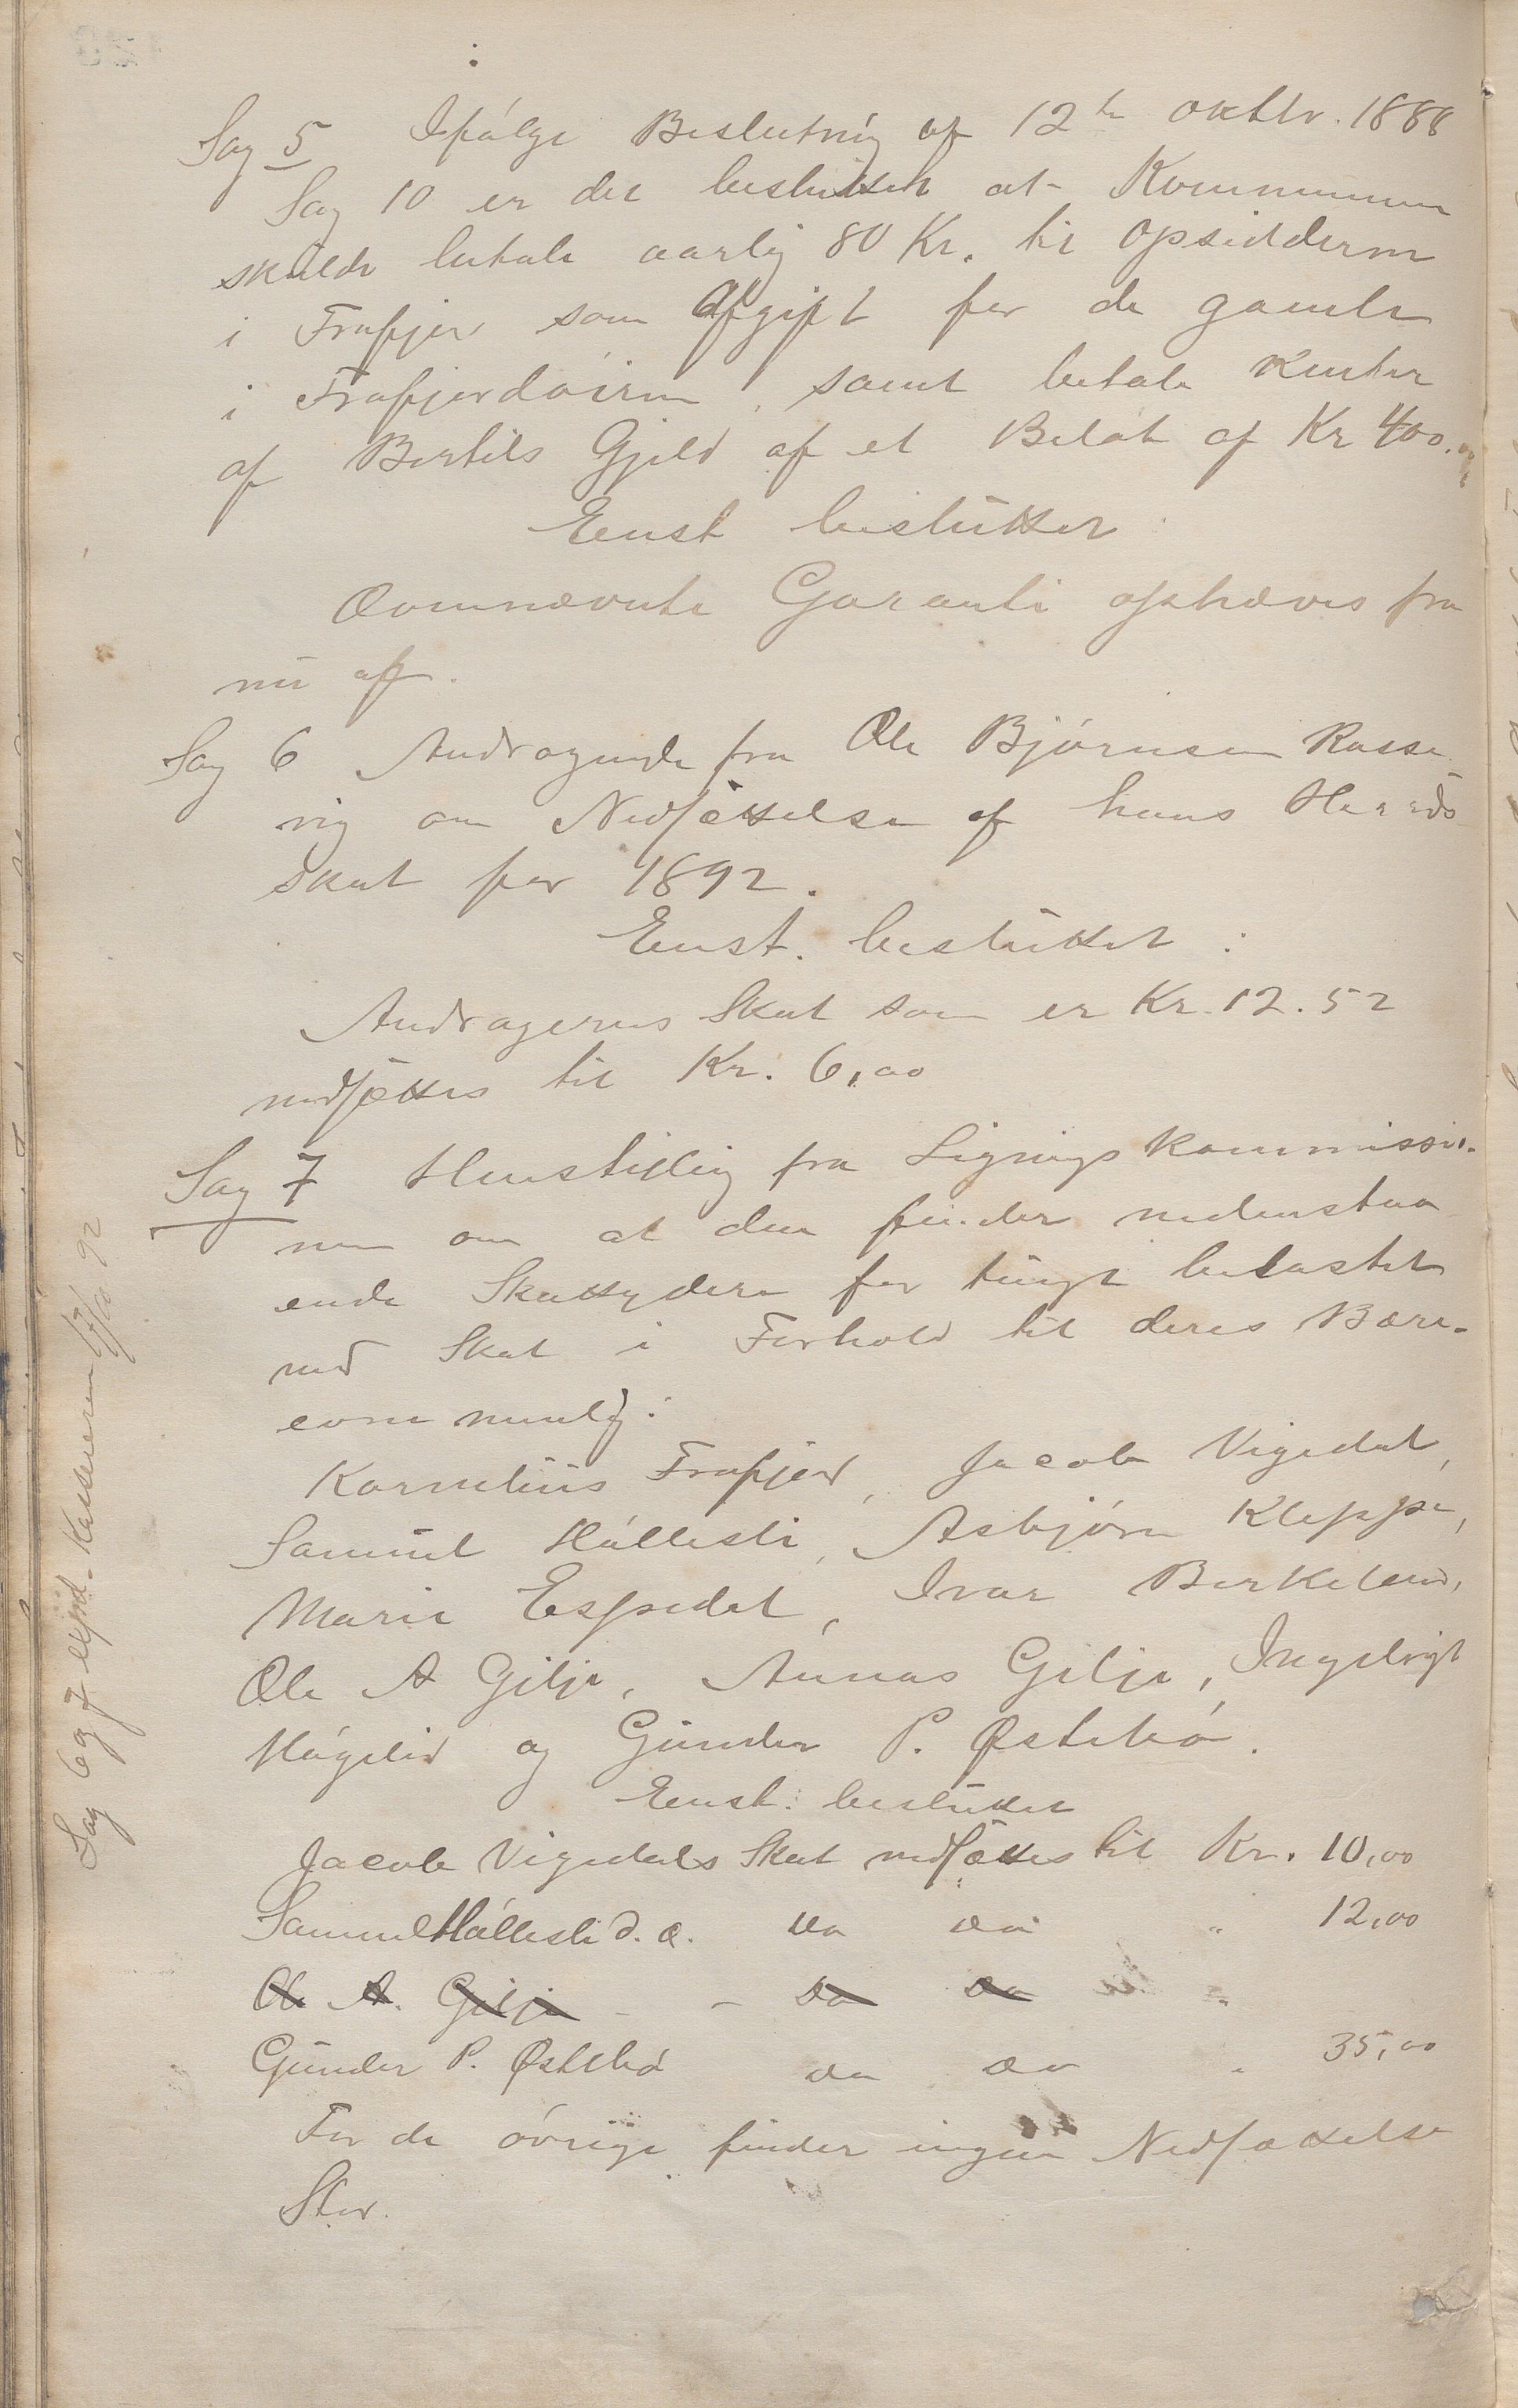 Sag 5 Ifølge Beslutnig af 12te oktbr. 1888
Sag 10 er det besluttet at Kommunen
skulde betale aarlig 80 Kr. til Opsidderne
i Frafjor som Afgift for de gamle
i Frafjordøiren, samt betale Renter
af Bertils Gjeld af et Beløb af Kr 400.00
Eenst besluttet:
Ovennævnte Garanti ophæves fra
nu af.
Sag 6 Andragende fra Ole Bjørnsen Rasse-
vig om Nedsættelse af hans Herreds-
skat for 1892.
Eenst. besluttet:
Andragerens Skat som er Kr. 12.52
nedsættes til Kr. 6,00
Sag 7 Henstillig fra Lignings kommissio-
nen om at den finder nedenstaa
ende Skatteydere for tungt belastet
med Skat i Forhold til deres Bære-
evne nemlig:
Kornelius Frafjord, Jacob Vigedal,
Samuel Høllesli, Asbjørn Kleppe,
Marie Espedal, Ivar Birkeland,
Ole A Gilje, Annas Gilje, Ingebrigt
Høgelid og Gunder P. Østebø.
Eenst. besluttet
Jacob Vigedals Skat nedsættes til Kr. 10,00
Samuel Hølleslid.s. do do " 12,00
Ol A. Gilje - - do do "
Gunder P. Østebø do do " 35,00
For de øvrige finder ingen Nedsættelse
Sted.
Sag 6 og 7 exped. Kasseren 17/10 92